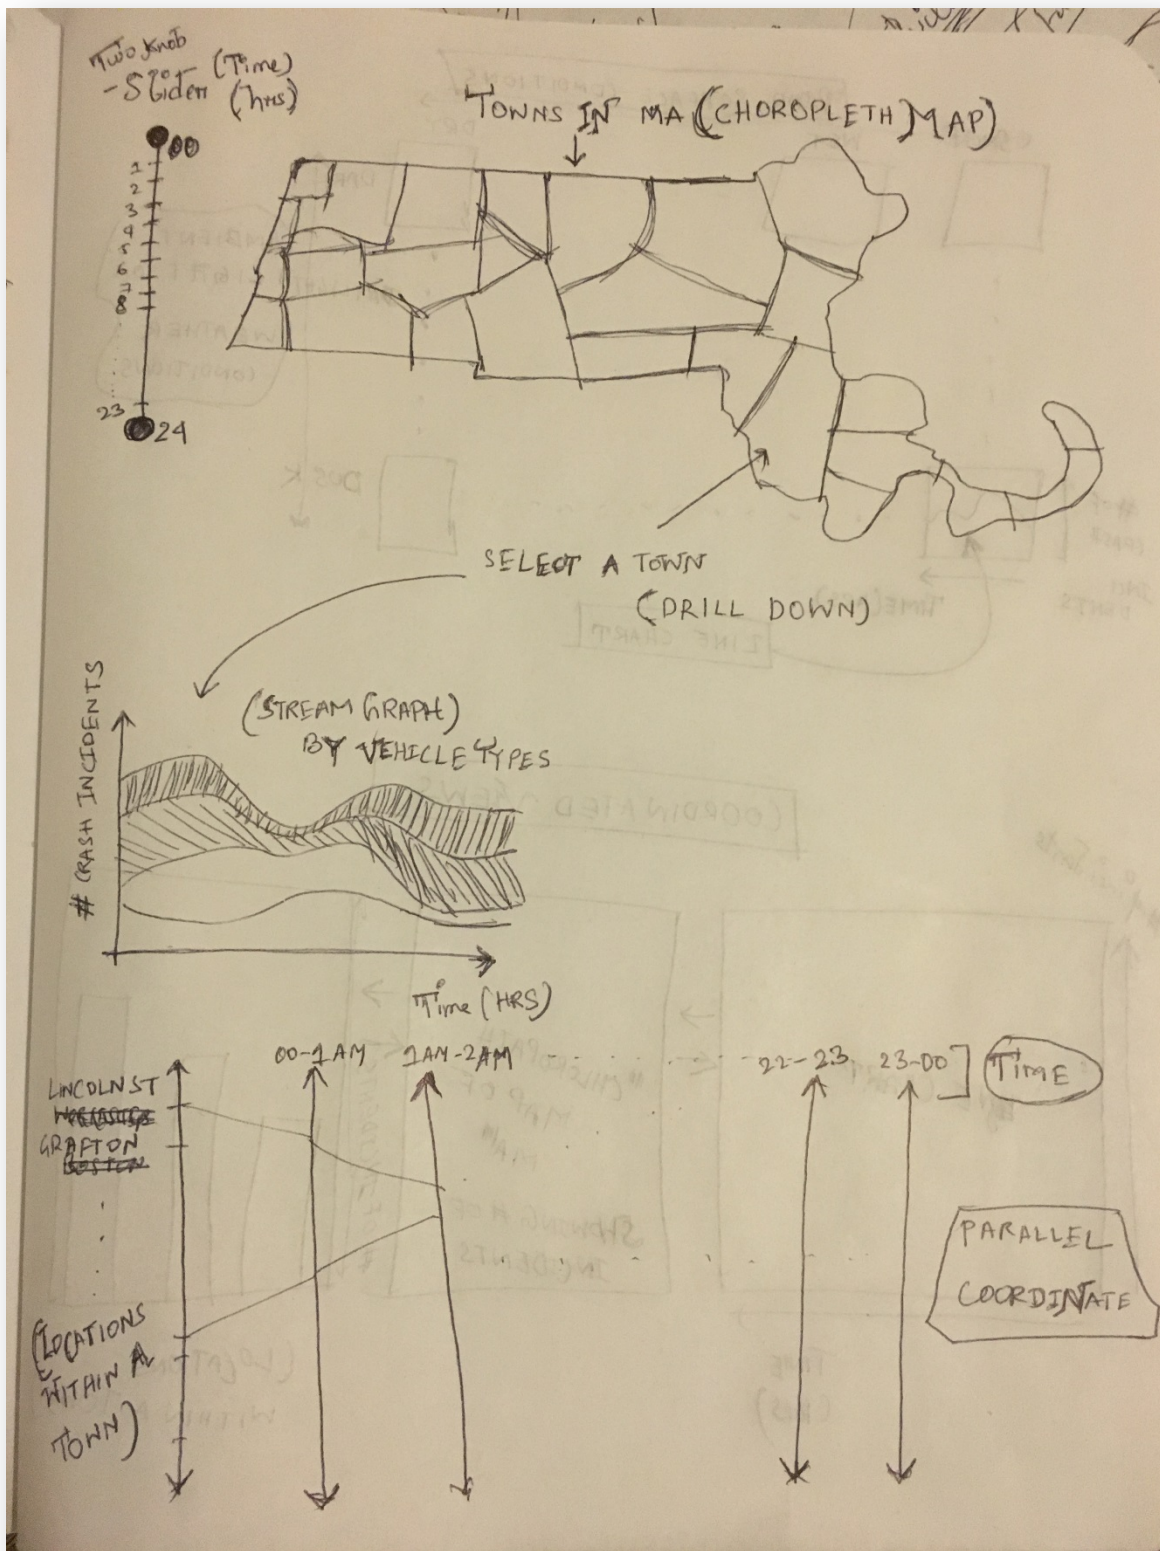 Two Knob
- Slider (Time)
(hrs)
00
1
2
3
4
5
6
7
8
23
24
TOWNS IN MA (CHOROPLETH MAP)
SELECT A TOWN
(DRILL DOWN)
# CRASH INCIDENTS
(STREAM GRAPH)
BY VEHICLE TYPES
Time (HRS)
00-1AM 1AM-2AM 22-23 23-00 TIME
LINCOLN ST
GRAFTON
BOSTON
(LOCATIONS
WITHIN A
TOWN)
PARALLEL
COORDINATE